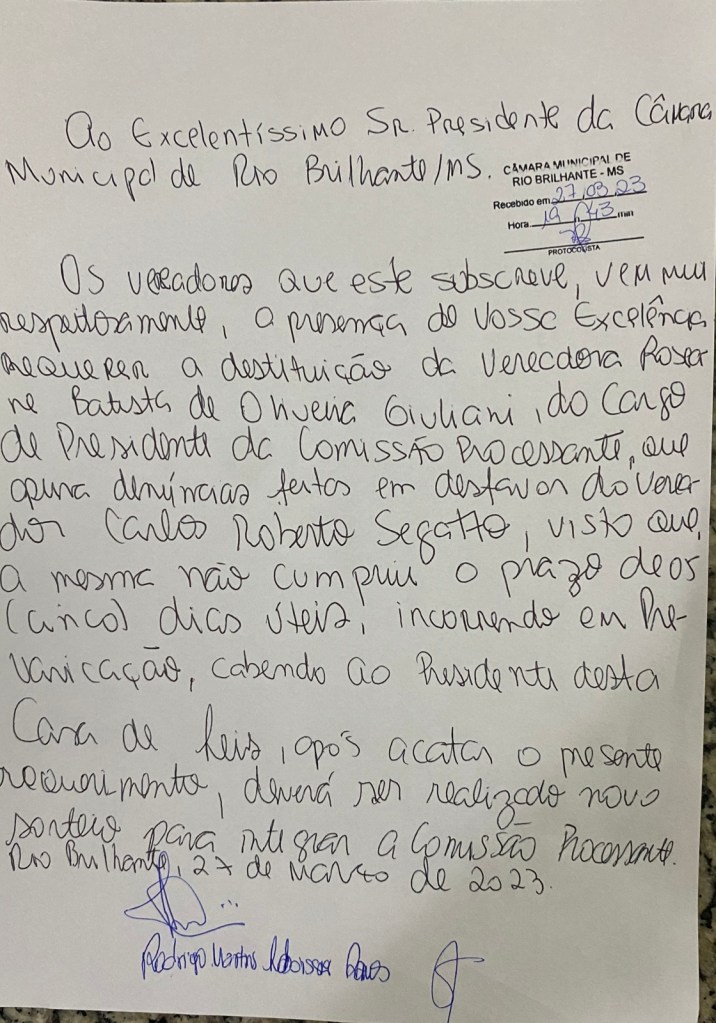 Ao Excelentíssimo Sr. Presidente da Câmara
Municipal de Rio Brilhante/MS.
CÂMARA MUNICIPAL DE
RIO BRILHANTE - MS
Recebido em 27/03/23
Hora 19 h 43 min
PROTOCOLISTA
Os vereadores que este subscreve, vem mui
respeitosamente, a presença de Vossa Excelência
requerer a destituição da Vereadora Rosea
ne Batista de Oliveira Giuliani, do Cargo
de Presidente da Comissão Processante, que
apura denúncias feitas em desfavor do Verea
dor Carlos Roberto Segatto, visto que,
a mesma não cumpriu o prazo de 05
(cinco) dias úteis, incorrendo em Pre-
varicação, cabendo ao Presidente desta
Casa de Leis, após acatar o presente
requerimento, deverá ser realizado novo
sorteio para integrar a Comissão Processante.
Rio Brilhante, 27 de Março de 2023.
Rodrigo Martins